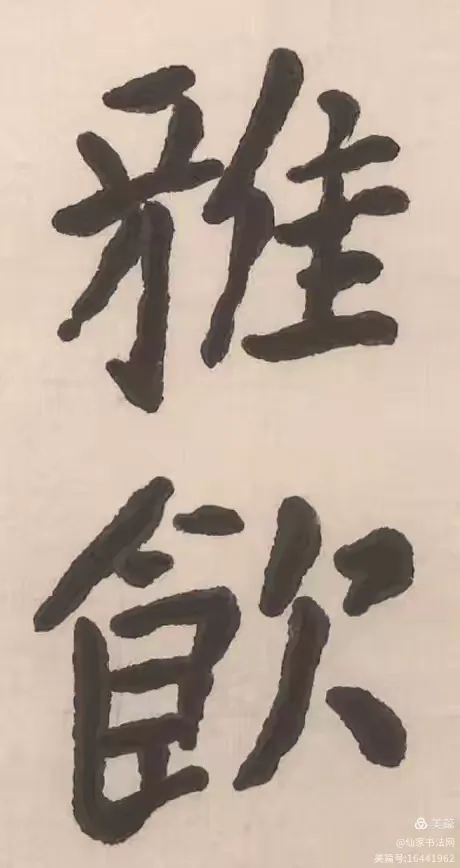 雅
飲
美篇
@仙家书法网
美篇号:16441962